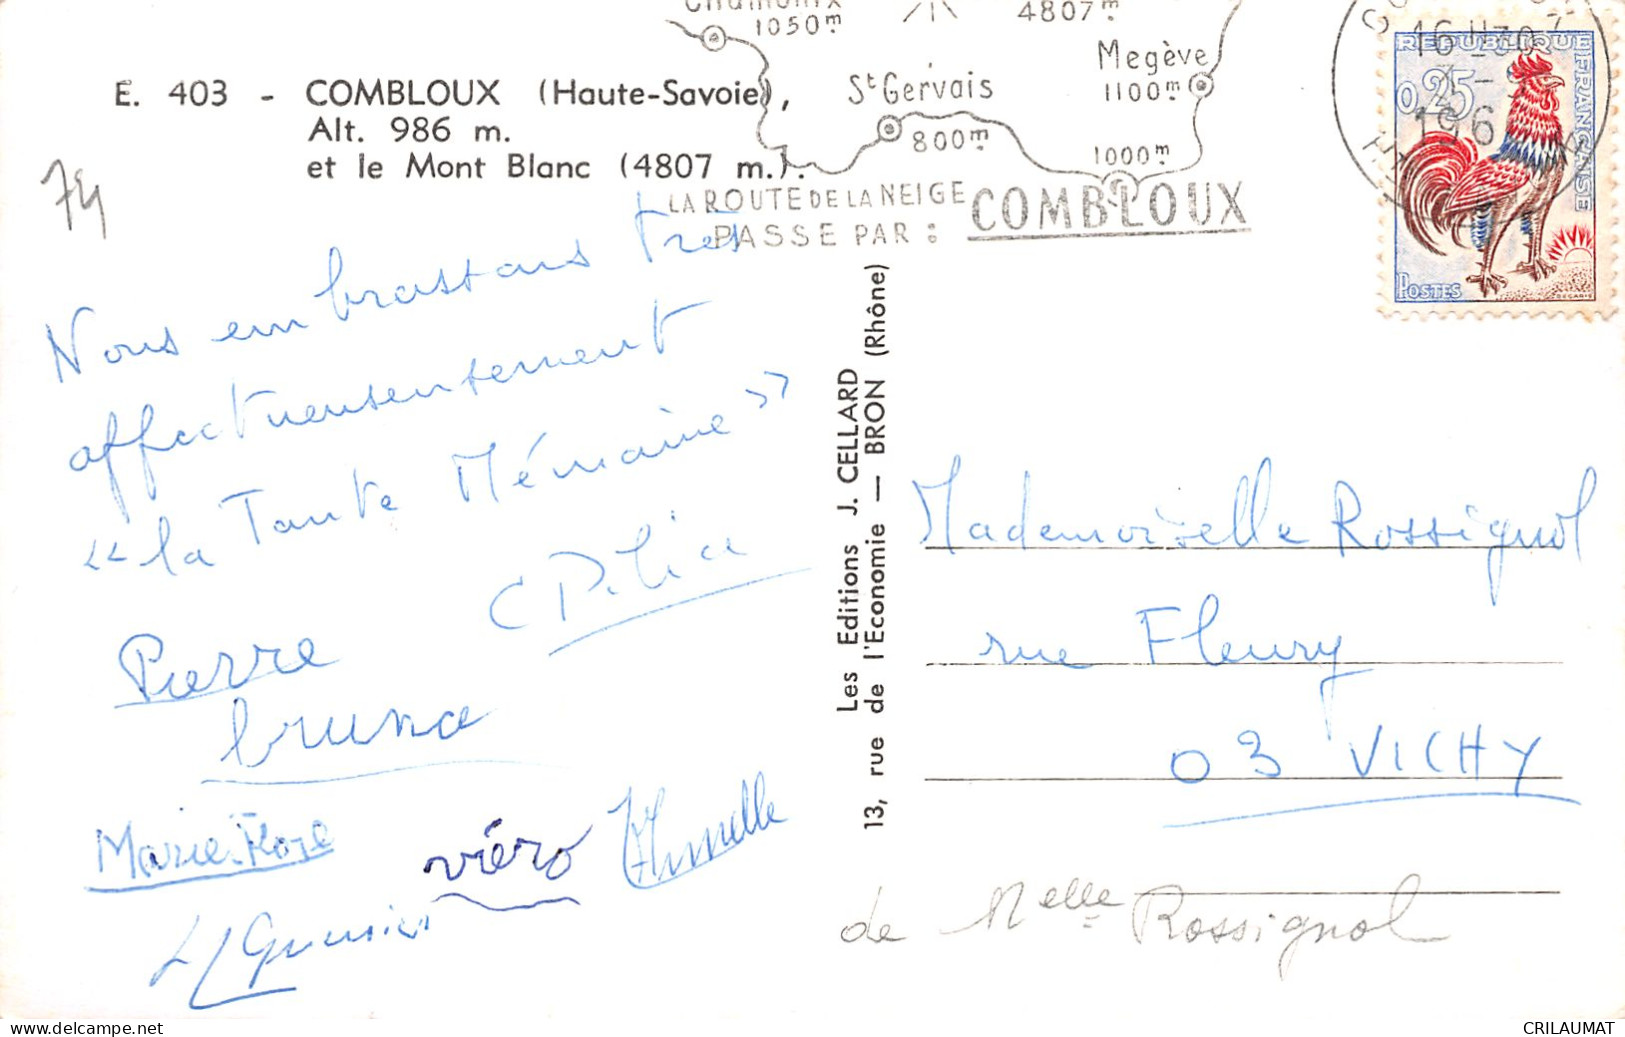 E. 403 - COMBLOUX (Haute-Savoie),
Alt. 986 m.
et le Mont Blanc (4807 m.).
74
Chamonix
1050m
4807m
Megève
1100m
St Gervais
800m
1000m
LA ROUTE DE LA NEIGE
PASSE PAR : COMBLOUX
16 H30
196
REPUBLIQUE
FRANÇAISE
0,25
POSTES
DECARIS
Nous embrassons très
affectueusement
« la Tante Mémaine »
Pierre
bruno
Marie-Flore
véro
Les Editions J. CELLARD
13, rue de l'Economie — BRON (Rhône)
Mademoiselle Rossignol
rue Fleury
03 VICHY
de Melle Rossignol
CRILAUMAT